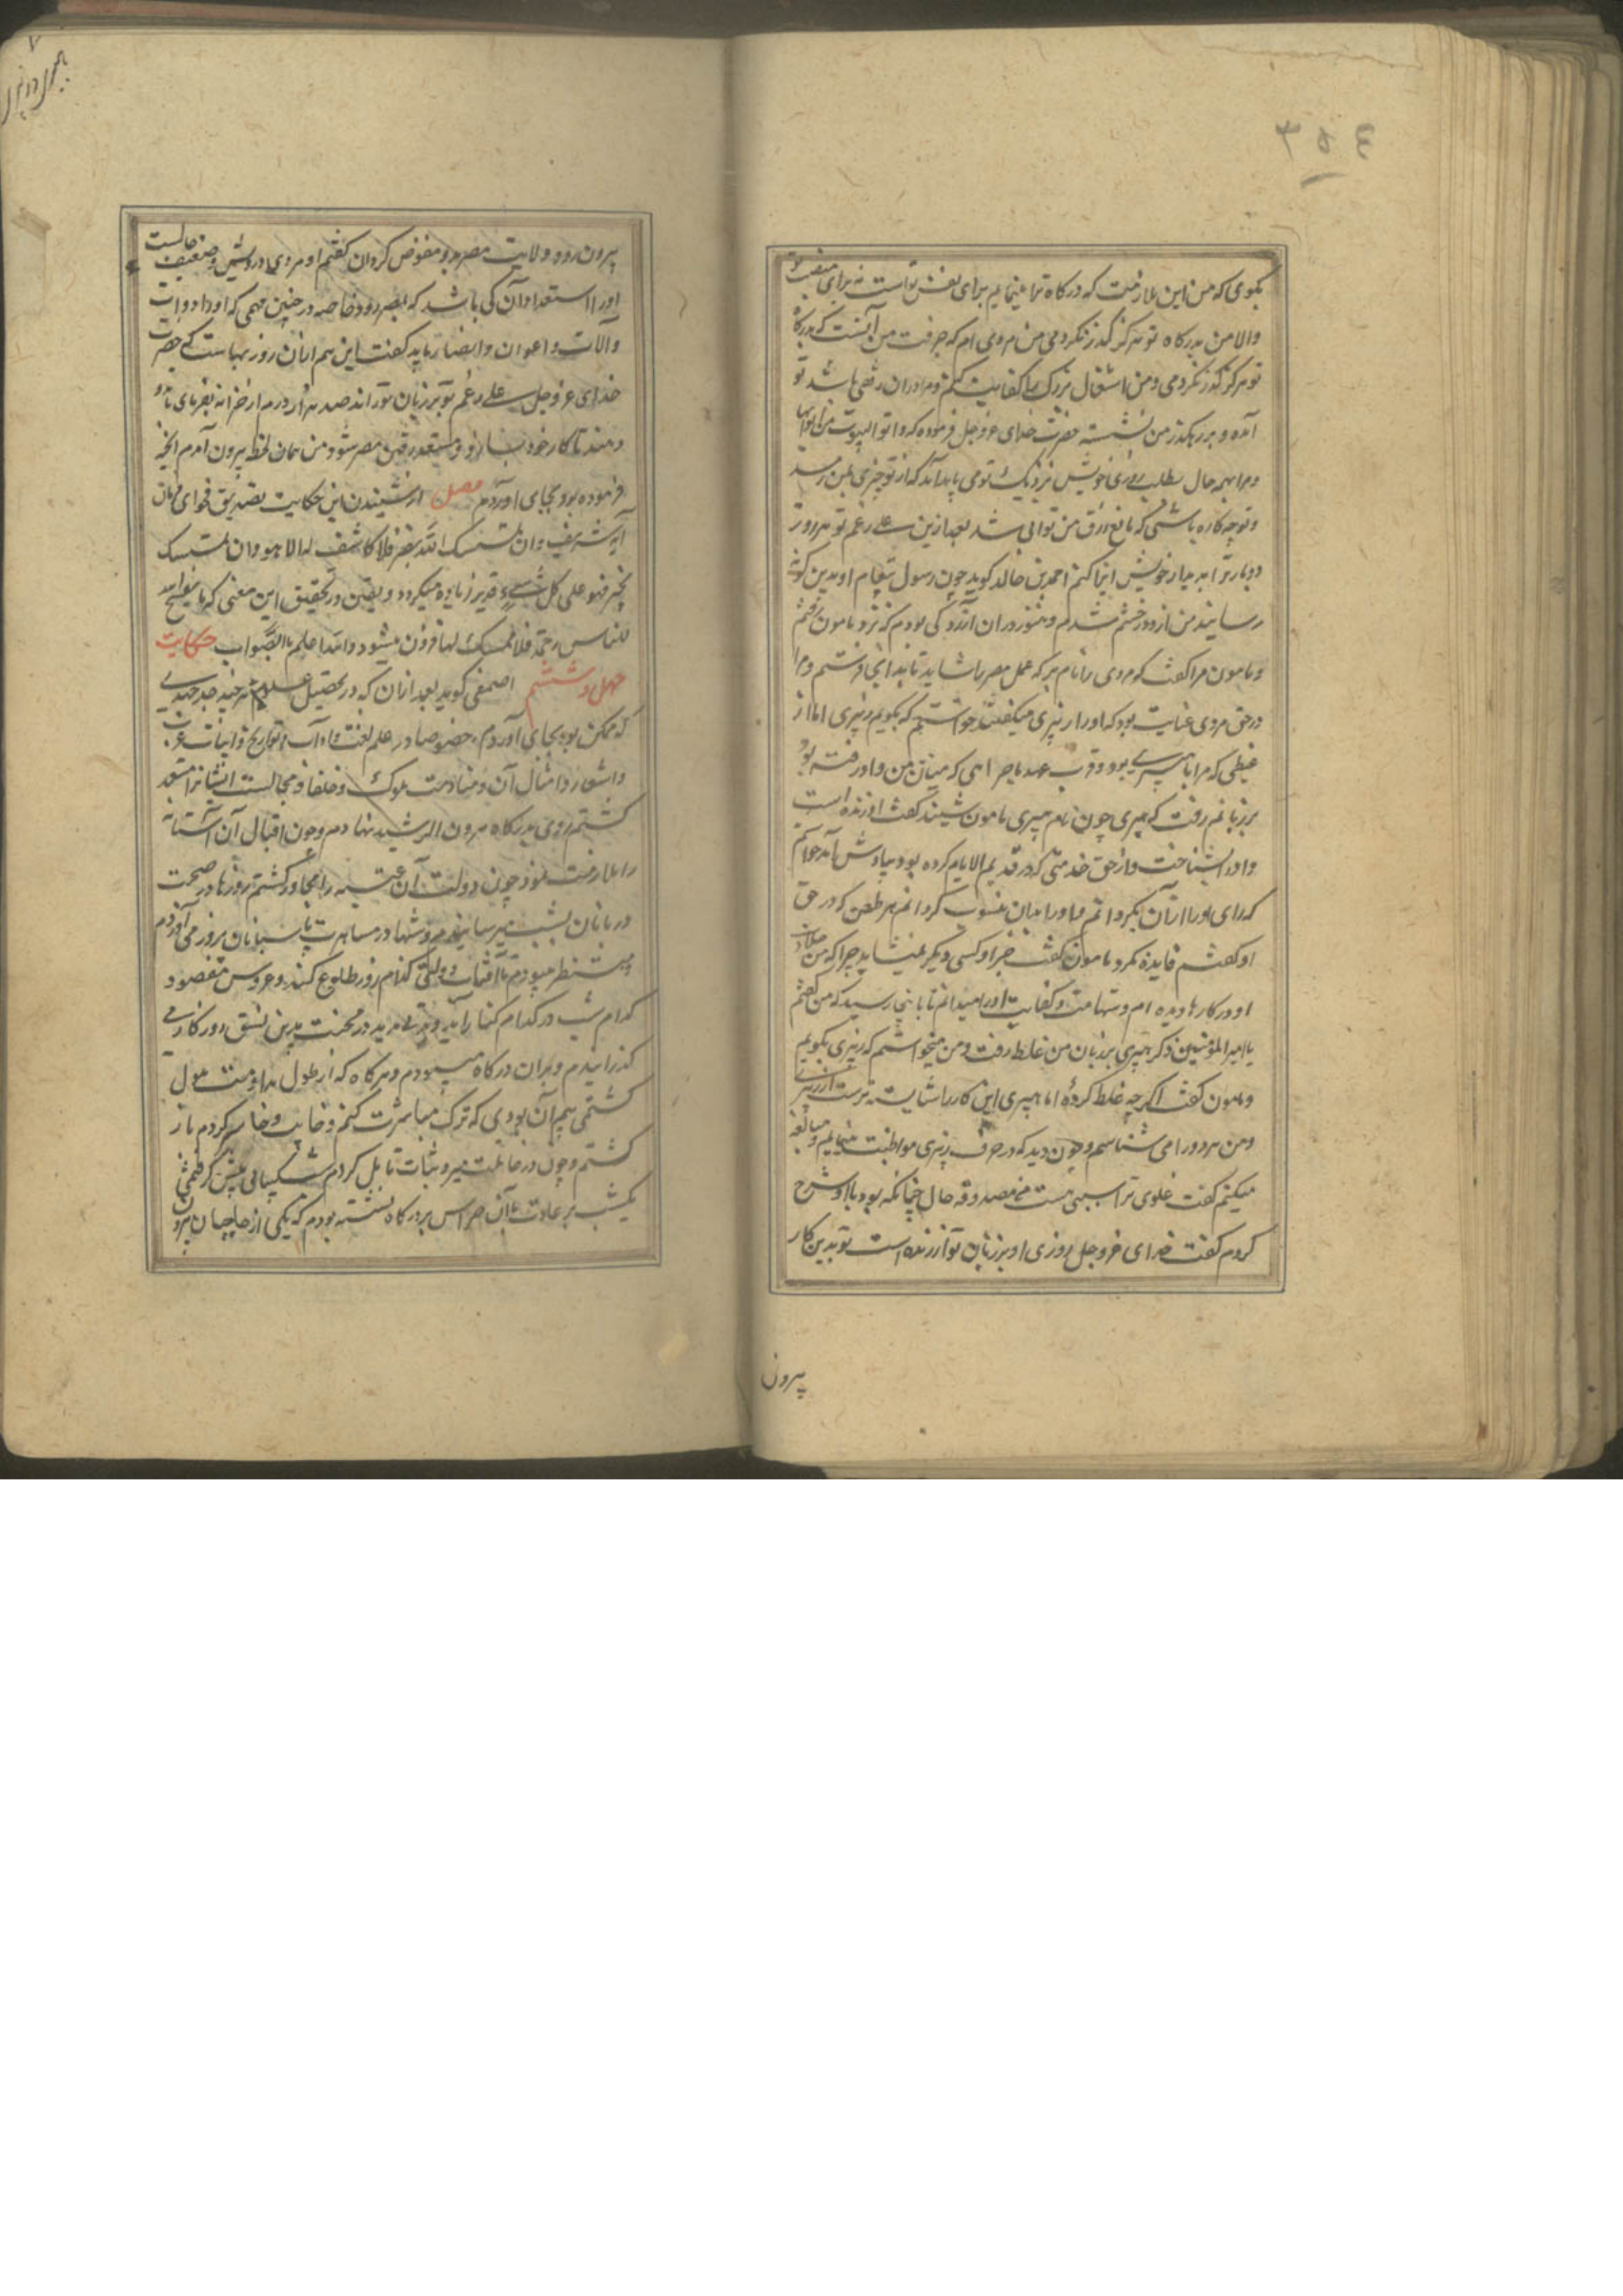 ۳۵٤
بگوی که من این ملازمت که درکاه ترا مینمایم برای نفس تو است نه برای منفعت
والا من بدرکاه تو هرکز گذر نکردمی من مردی ام که حرفت من آنست که بدرکاه
تو هرکز گذر نکردمی ومن اشغال بزرک را کفایت کنم ومرا دران رقمی باشد تو
آمده و بر رهکذر من نشسته حضرت خدای عزوجل فرموده که واتوا البیوت من ابوابها
ومرا بهمه حال بطلب روزی خویش نزدیک تو می باید آمد که از تو چیزی بمن رسد
وتو چه کاره باشی که مانع رزق من توانی شد بعد ازین علی رغم تو هر روز
دوبار ترا بدیدار خویش ایذا کنم احمد بن خالد کوید چون رسول پیغام او بدین کونه
رسانید من از و در خشم شدم و هنوز دران آزردکی بودم که نزد مامون رفتم
ومامون مرا کفت که مردی را نام بر که عمل مصر را شاید تا بدانجا فرستم ومرا
در حق مردی عنایت بود که اورا زنبری میکفتند خواستم که بکویم زنبری اما از
غیظی که مرا با هبیری بود وقرب عهد ماجرایی که میان من واو رفته بود
بر زبانم رفت که هبیری چون نام هبیری مامون شنید کفت او زنده است
واورا بشناخت واز حق خدمتی که در قدیم الایام کرده بود بیادش آمد خواستم
که رای اورا ازان بگردانم واورا بدان منسوب کردانم هر طعن که در حق
او کفتم فایده نکرد مامون کفت جز او کسی دیکر نمیشاید چرا که من جلادت
او در کارها دیده ام وشهامت وکفایت اورا میدانم تا بانجا رسید که من کفتم
یا امیرالمؤمنین ذکر هبیری بر زبان من غلط رفت ومن میخواستم که زنبری بکویم
ومامون کفت اکرچه غلط کردهٔ اما هبیری این کار را شایسته ترست از زنبری
ومن هردو را می شناسم وچون دید که در حرف زنبری مواظبت مینمایم ومبالغه
میکنم کفت غلوی ترا سببی هست من مصدوقه حال چنانکه بود با او شرح
کردم کفت خدای عزوجل روزی او بر زبان تو آزرنده است تو بدین کار
پیرون
پیرون رو و ولایت مصر بدو مفوض کردان کفتم او مردی درویش وضعیف حالست
اورا استعداد آن کی باشد که بمصر رود خاصه در چنین مهمی که اورا دواب
وآلات و اعوان و انصار باید کفت این هم ازان روزیهاست که حضرت
خدای عزوجل علی رغم تو بر زبان تو راند صد هزار درم از خزانه بفرمای تا بدو
دهند تا کار خود بسازد و مستعد رفتن مصر شود من همان لحظه پیرون آمدم آنچه
فرموده بود بجای آوردم فصل از شنیدن این حکایت بتصدیق فحوای فرمان
آیه شریف وان یمسسک الله بضر فلا کاشف له الا هو وان یمسسک
بخیر فهو علی کل شیء قدیر زیاده میکردد و یقین در تحقیق این معنی که ما یفتح الله
للناس رحمة فلا ممسک لها فزون میشود والله اعلم بالصواب حکایت
چهل و ششم اصمعی کوید بعد ازان که در تحصیل علم هرچند جد جهدی
که ممکن بود بجای آوردم خصوصا در علم لغت وآداب وتواریخ وانساب عرب
واشعار وامثال آن ومنادمت ملوک وخلفا ومجالست ایشانرا مستعد
کشتم روی بدرکاه هرون الرشید نهادم وچون اقبال آن آستانه
را ملازمت نمود چون دولت آن عتبه را مجاور کشتم روزها در صحبت
دربانان بشب میرسانیدم وشبها در مسامرت پاسبانان بروز می آوردم
ومنتظر میبودم تا آفتاب دولتی کدام روز طلوع کند وعروس مقصود
کدام شب در کدام کنار آید ومدتی مدید در محنت بدین نسق روزکار
کذرانیدم وبران درکاه میبودم وهرکاه که از طول مداومت ملول
کشتمی بیم آن بودی که ترک مباشرت کنم وخایب وخاسر کردم باز
کشتم وچون در عاقبت صبر وثبات تامل کردم شکیبائی پیش کرفتمی
یکشب بر عادت با آن حراس بر درکاه نشسته بودم که یکی از حاجبان پیرون